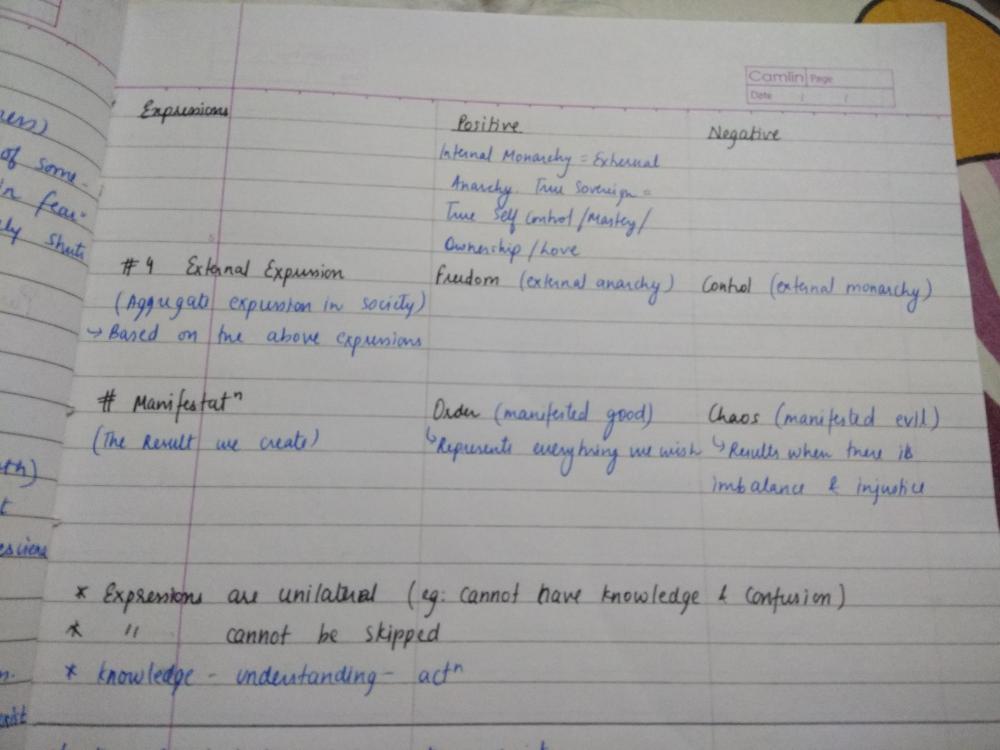 Camlin Page
Date / /
Expressions Positive Negative
Internal Monarchy = External
Anarchy. True Sovereign =
True Self Control / Mastey /
Ownership / Love
#4 External Expression Freedom (external anarchy) Control (external monarchy)
(Aggregate expression in society)
↳ Based on the above expressions
# Manifestatⁿ Order (manifested good) Chaos (manifested evil)
(The Result we create) ↳ Represents everything we wish ↳ Results when there is
imbalance & injustice
* Expressions are unilateral (eg: cannot have knowledge & confusion)
* " cannot be skipped
* knowledge - understanding - actⁿ
ness)
of some-
in fear-
ly shuts